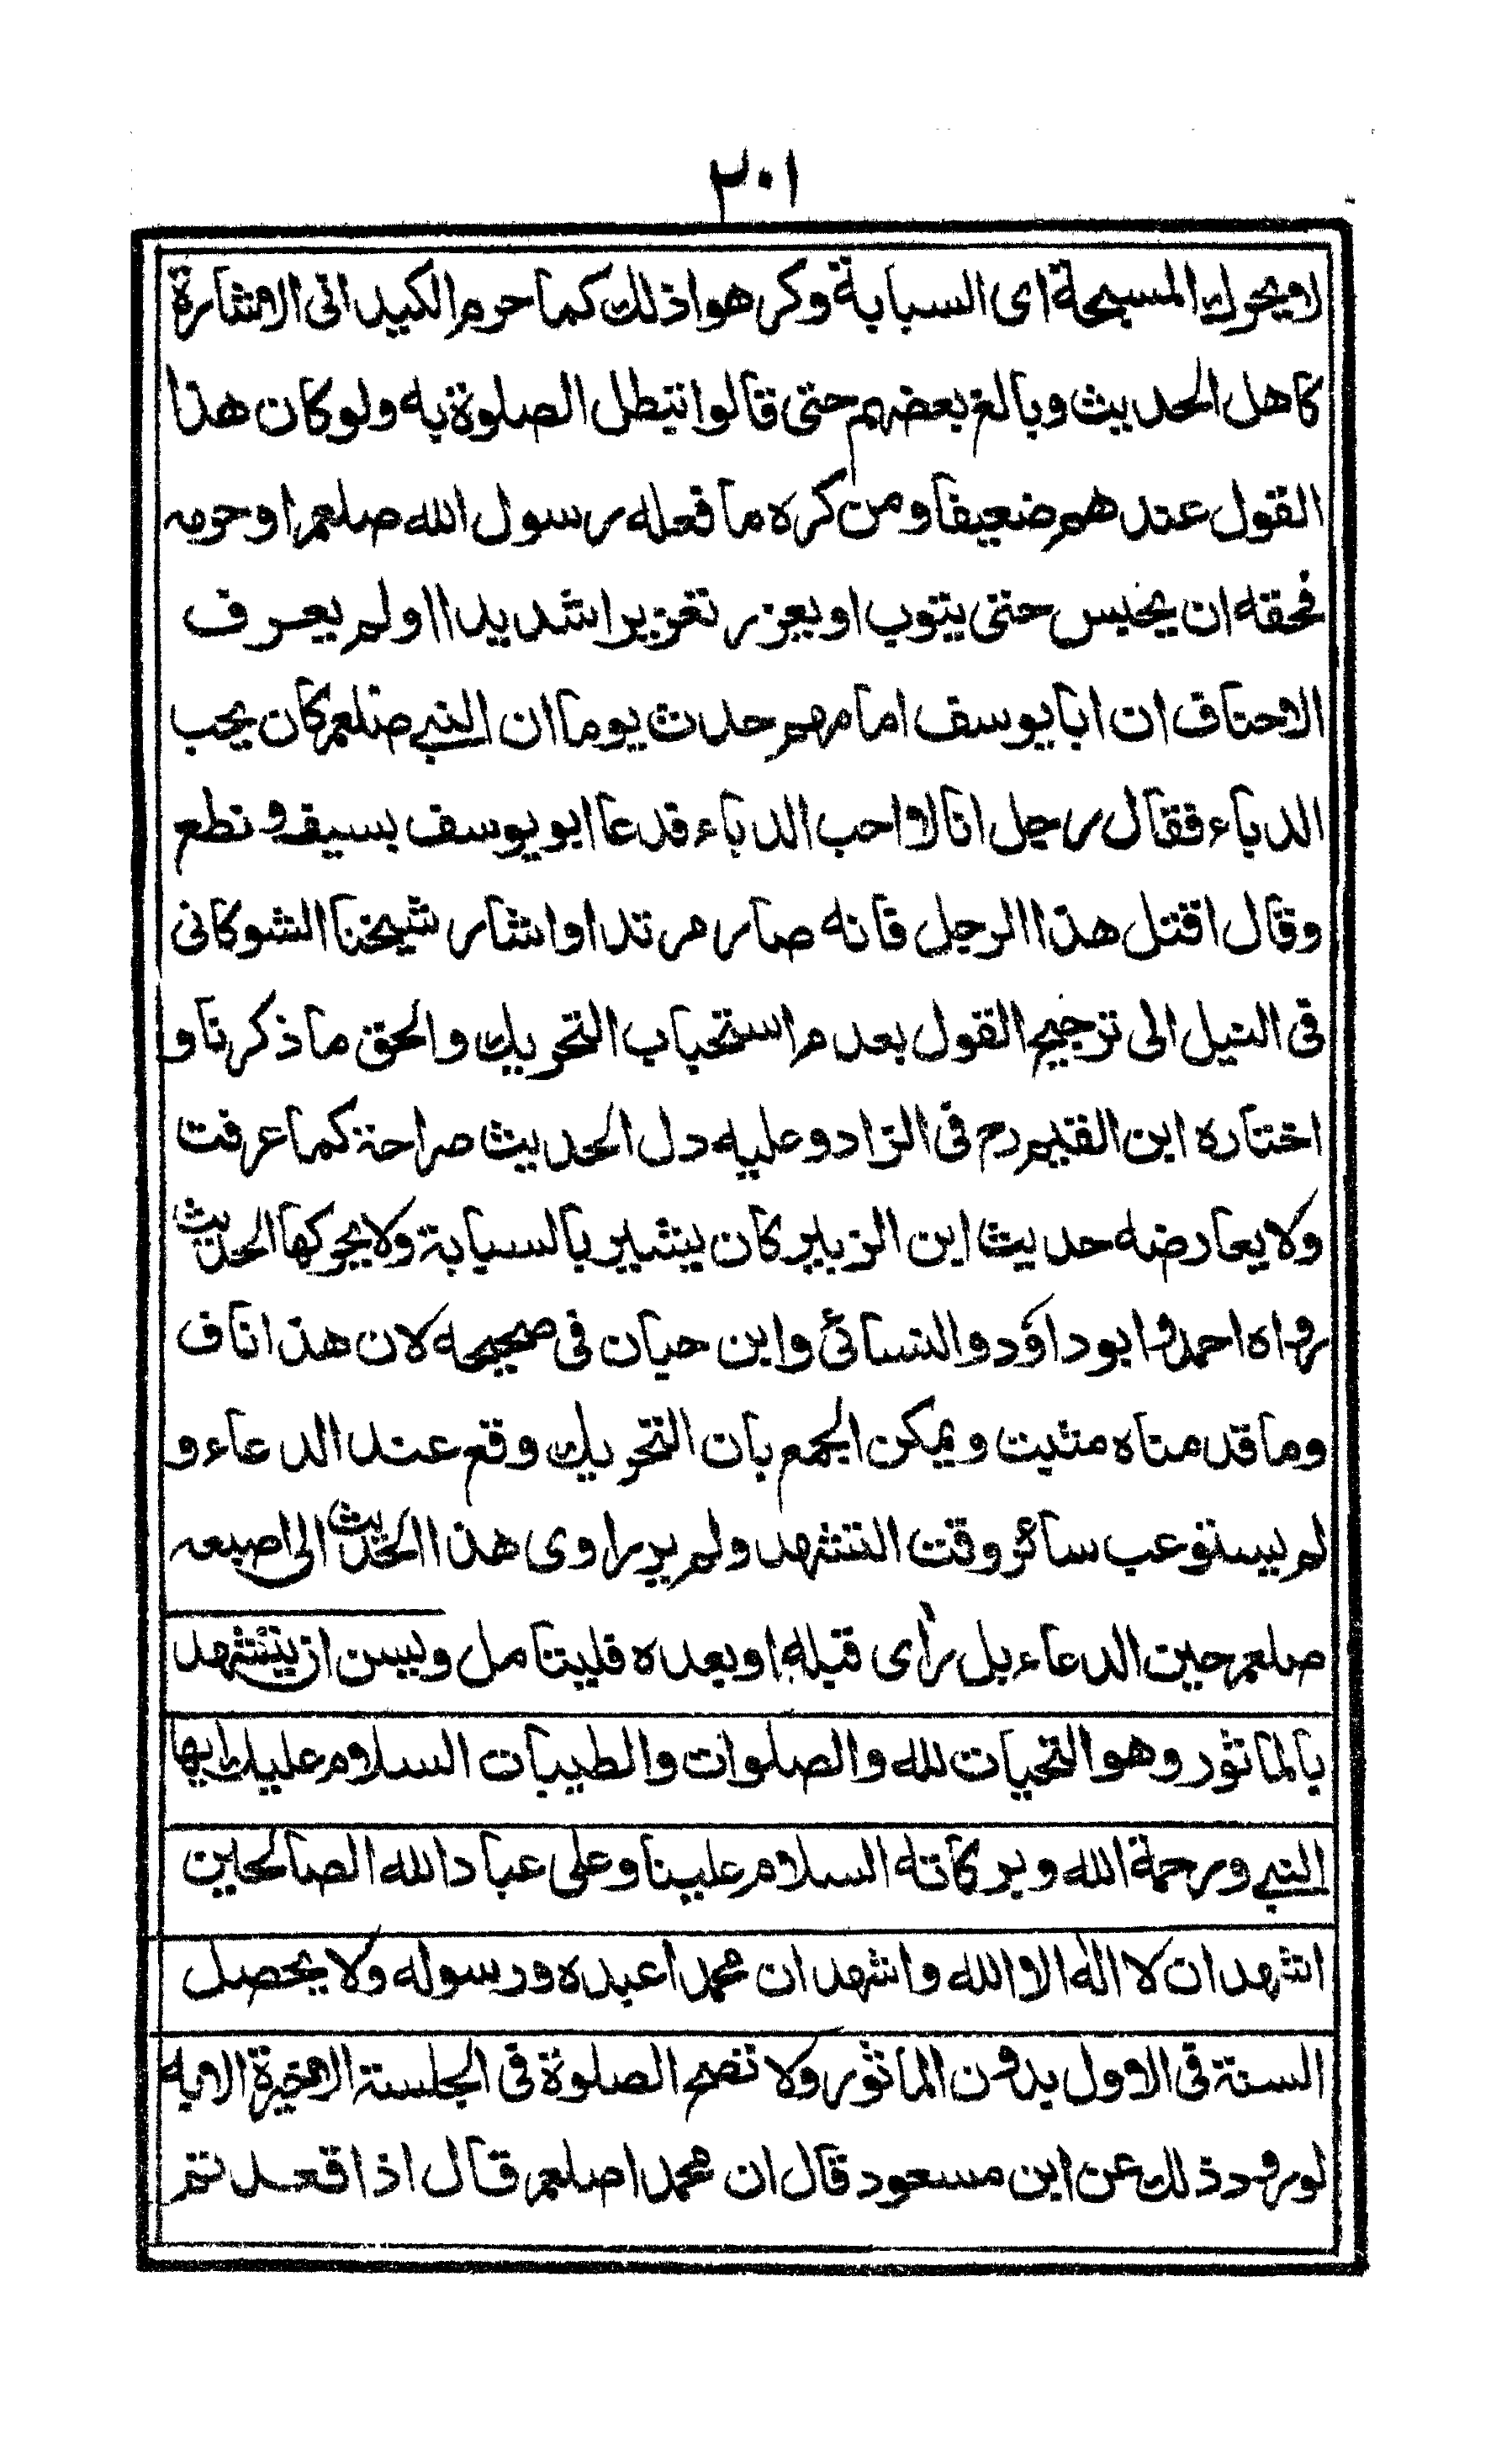 ٢٠١
لا يحرك المسبحة اى السبابة وكرهوا ذلك كما حرم الكيدانى الاشارة
كاهل الحديث وبالغ بعضهم حتى قالوا تبطل الصلوة به ولو كان هذا
القول عندهم ضعيفا ومن كره ما فعله رسول الله صلعم او حرمه
فحقه ان يحبس حتى يتوب او يعزر تعزيرا شديدا اولم يعرف
الاحناف ان ابا يوسف امامهم حدث يوما ان النبے صلعم كان يحب
الدباء فقال رجل انا لا احب الدباء فدعا ابو يوسف بسيف و نطع
وقال اقتل هذا الرجل فانه صار مرتدا واشار شيخنا الشوكانى
فى النيل الى ترجيح القول بعدم استحباب التحريك والحق ما ذكرنا و
اختاره ابن القيم رح فى الزاد وعليه دل الحديث صراحة كما عرفت
ولا يعارضه حديث ابن الزبير كان يشير بالسبابة ولا يحركها الحديث
رواه احمد و ابوداؤد والنسائى وابن حبان فى صحيحه لان هذا ناف
وما قدمناه مثبت ويمكن الجمع بان التحريك وقع عند الدعاء و
لم يستوعب سائر وقت التشهد ولم ير راوى هذا الحديث الى اصبعه
صلعم حين الدعاء بل رأى قبله او بعده فليتامل ويسن ان يتشهد
بالماثور وهو التحيات لله والصلوات والطيبات السلام عليك ايها
النبے ورحمة الله وبركاته السلام علينا وعلى عباد الله الصالحين
اشهد ان لا اله الا الله واشهد ان محمدا عبده ورسوله ولا يحصل
السنة فى الاول بدون الماثور ولا تصح الصلوة فى الجلسة الاخيرة الا به
لورود ذلك عن ابن مسعود قال ان محمدا صلعم قال اذا قعدتم